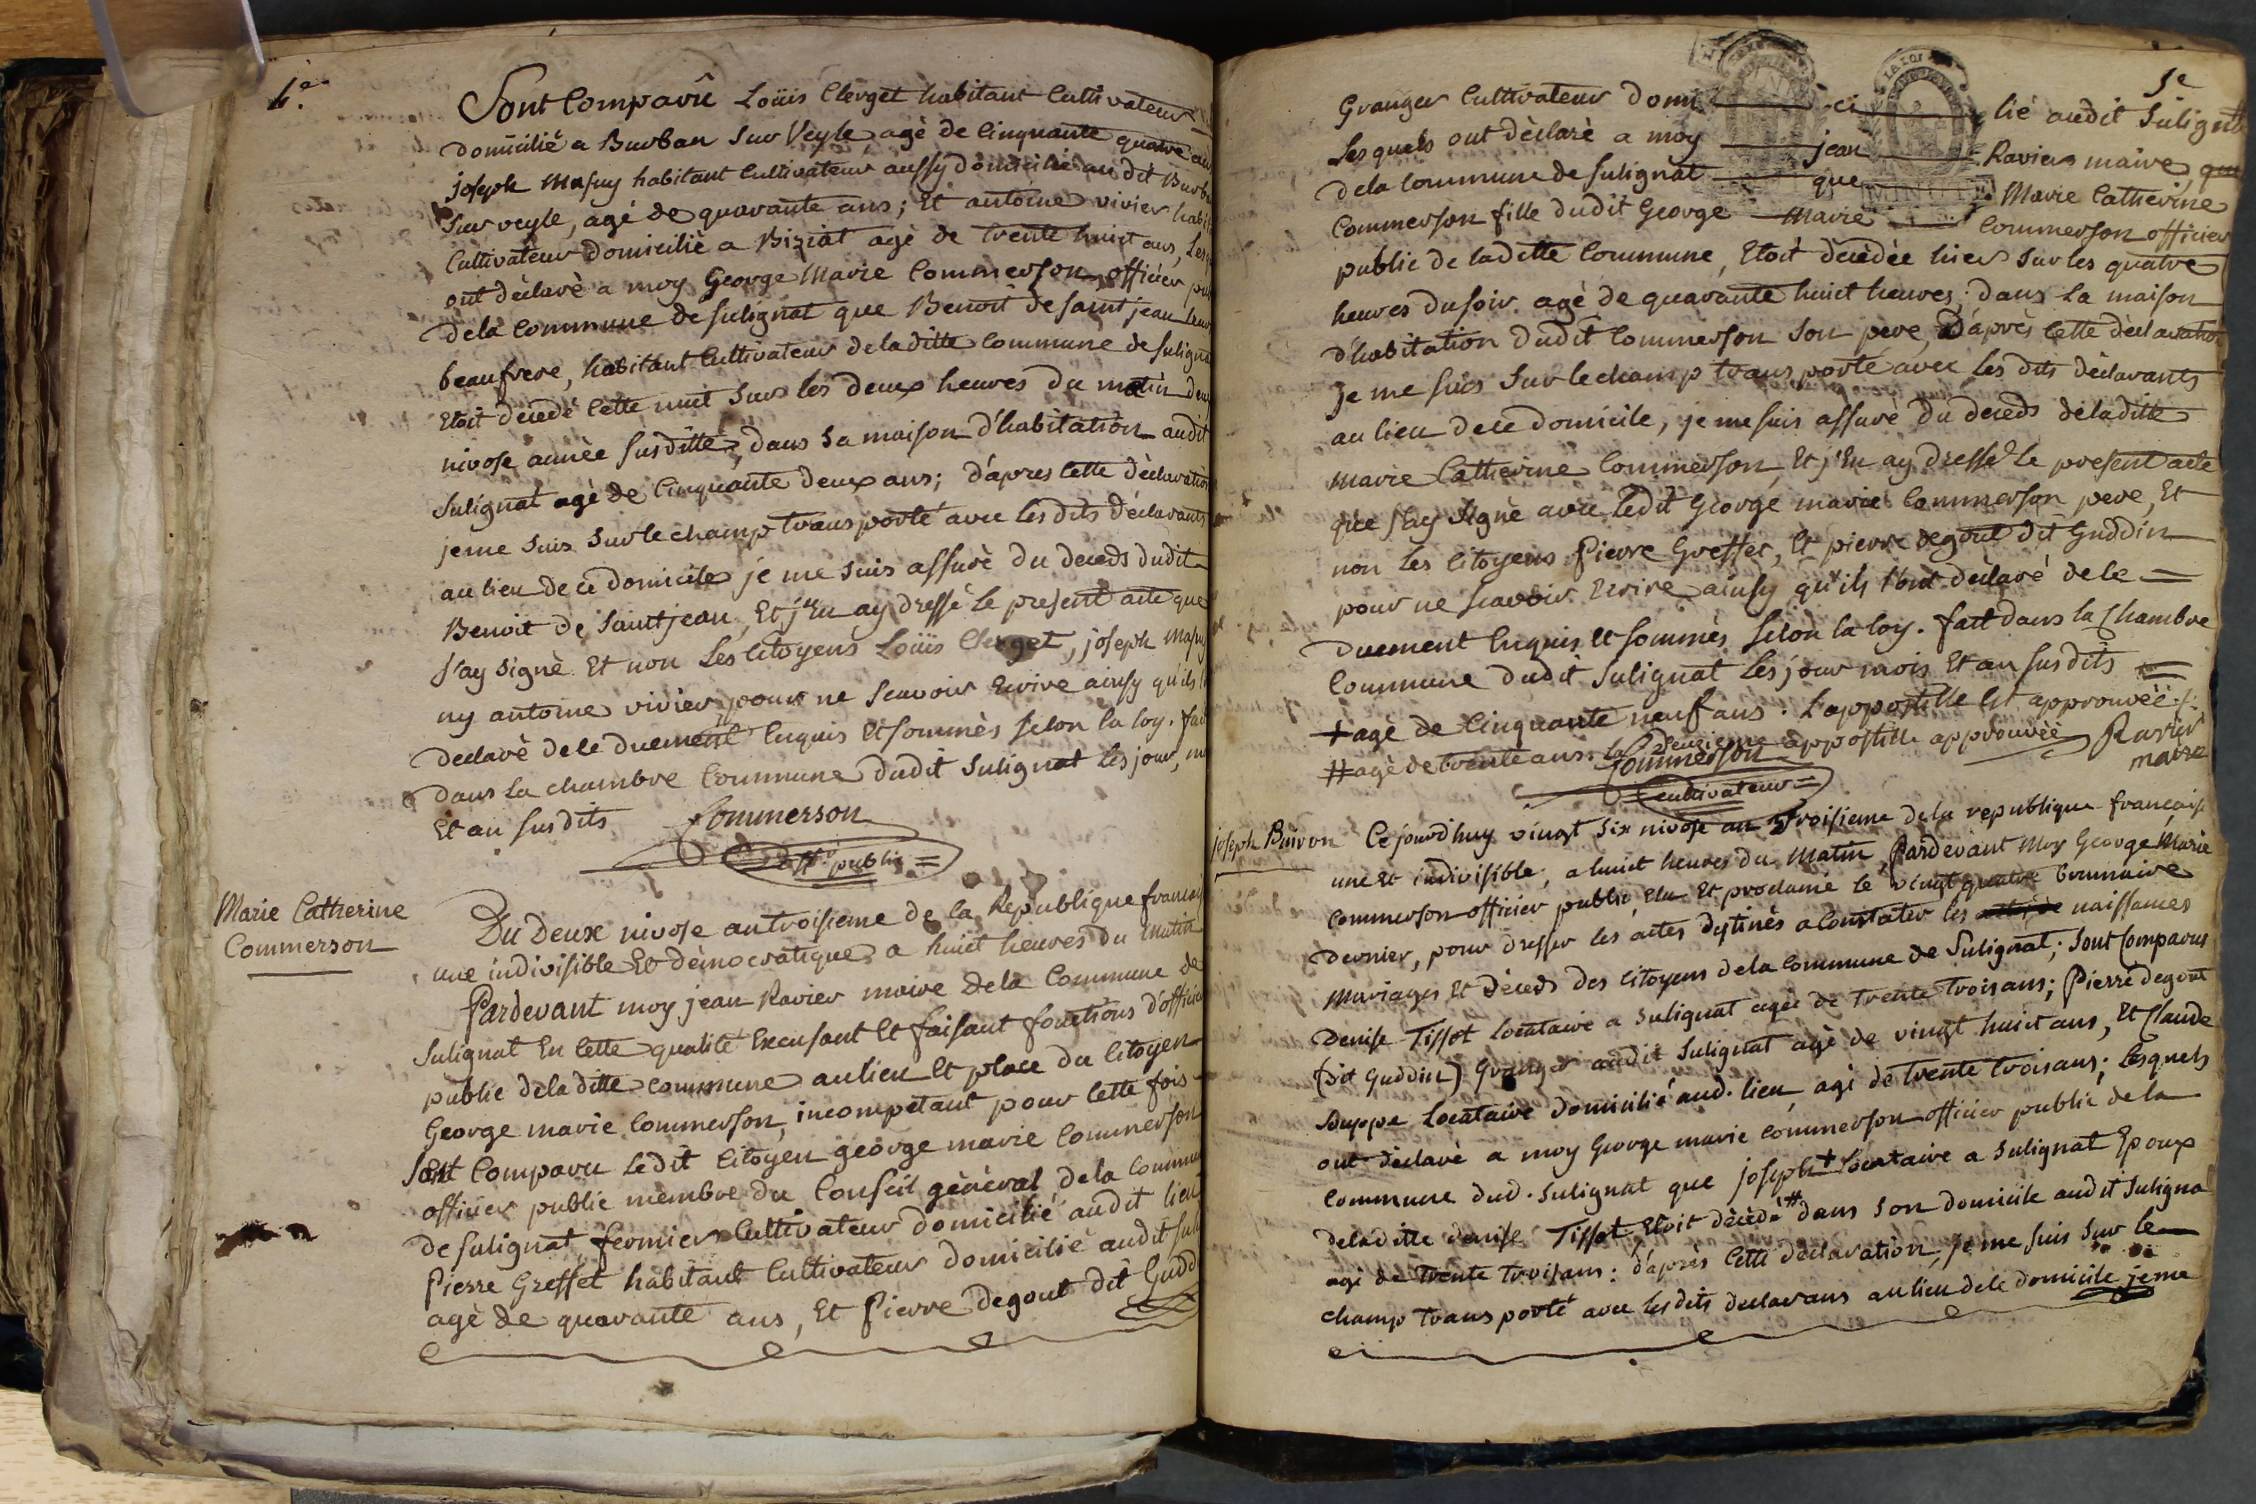 4.e
Sont Comparû Loüis Clerget habitant Cultivateur
domicilié a Burban Sur Veyle, agè de Cinquante quatre ans
joseph Mapuy habitant Cultivateur aussy domicilié au dit Burban
Sur veyle, agè de quarante ans; Et antoine vivier habit
Cultivateur domiciliè a Biziat agè de trente huict ans, Lesq
ont dèclarè a moy George Marie Commerson officier pub
de la Commune de sulignat que Benoit de saint jean leur
beaufrere, habitant Cultivateur de laditte Commune de sulignat
Etoit dècedè Cette nuit Sur les deux heures du matin deux
nivose annèe susditte, dans sa maison d'habitation audit
Sulignat agè de Cinquante deux ans; d'apres Cette dèclaration
jeme suis Sur le champ transporté avec les dits dèclarants
au lieu de ce domicile je me suis assurè du deceds dudit
Benoit de Saint jean, Et j'En ay dressé le present acte que
j'ay signè Et non Les Citoyens Loüis Clerget, joseph Mapuy
ny antoine vivier pour ne scavoir Ecrire ainsy qu'ils l'
declarè de ce duement Enquis Et sommès selon la loy. fait
dans La chambre Commune dudit Sulignat les jour, mo
Et an susdits Commerson
off. public
Marie Catherine
Commerson
Du Deux nivose an troisieme de la Republique francai
une indivisible Et dèmocratique a huit heures du matin
Pardevant moy jean Ravier maire de la Commune de
Sulignat En Cette qualité Excusant Et faisant fonctions d'officier
public de laditte commune au lieu Et place du Citoyen
George marie Commerson, incompetant pour Cette fois
Sont Comparu Ledit Citoyen george marie Commerson
officier public membre du Conseil gènèral de la Commune
de sulignat, fermier Cultivateur domicilié audit lieu
Pierre Greffet habitant Cultivateur domicilié audit sul
agè de quarante ans, Et Pierre degout dit Gudd
5e
Granger Cultivateur domi ci lié audit Sulignat
Lesquels ont dèclarè a moy jean Ravier maire
de la Commune de sulignat que Marie Catherine
Commerson fille dudit George Marie Commerson officier
public de ladette Commune, Etoit dècèdèe hier sur les quatre
heures du soir agè de quarante huict heures. dans La maison
d'habitation dudit Commerson son pere, d'après Cette dèclaration
je me suis Sur lechamp transporté avec les dits dèclarants
au lieu de ce domicile, je me suis assurè du deceds de laditte
Marie Catherine Commerson, Et j'En ay dressé le present acte
que j'ay signè avec ledit George marie Commerson pere, Et
non les Citoyens Pierre Greffet, Et pierre degout dit Guddin
pour ne scavoir Ecrire ainsy qu'ils l'ont declaré de ce
duement Enquis Et sommès selon la loy. fait dans la Chambre
Commune dudit Sulignat les jour mois Et an susdits
+ agè de Cinquante neuf ans. L'appostille Est approuvèe
# agè de trente ans. la deuxieme appostille approuvèe Ravier
maire
Commerson
cultivateur
joseph Buiron
Cejourdhuy vingt six nivose an troisieme de la republique francaise
une Et indivisible, a huict heures du Matin, Pardevant Moy George Marie
Commerson officier public Elu Et proclamé le vingt quatre brumaire
dernier, pour dresser les actes destinès a Constater les naissances
Mariages Et dèceds des Citoyens de la Commune de Sulignat; Sont Comparus
Denise Tissot Locataire a Sulignat agée de trente trois ans; Pierre degout
(dit Guddin) Granger audit Sulignat agé de vingt huict ans, Et Claude
Duppe Locataire domicilié aud. lieu agé de trente trois ans; lesquels
ont declaré a moy George marie Commerson officier public de la
Commune dud. Sulignat que joseph + Locataire a Sulignat Epoux
de laditte denise Tissot Etoit dècèdé # dans son domicile audit Suligna
agé de trente trois ans: d'après Cette declaration, je me suis sur le
champ transporté avec lesdits declarans au lieu de ce domicile jeme